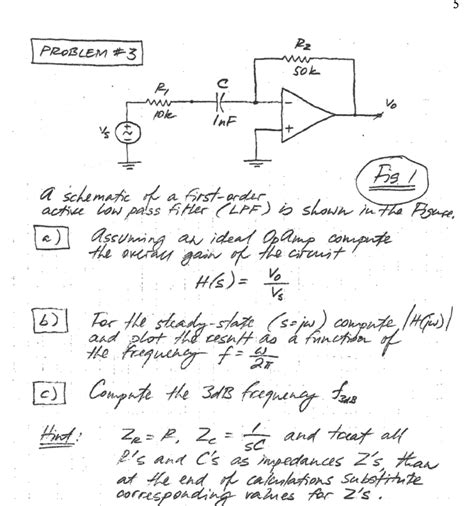 5
PROBLEM #3
R₂
50k
R₁
10k
C
1nF
Vs
Vo
Fig 1
A schematic of a first-order
active low pass filter (LPF) is shown in the Figure.
a) Assuming an ideal OpAmp compute
the overall gain of the circuit
H(s) = Vo / Vs
b) For the steady-state (s=jω) compute |H(jω)|
and plot the result as a function of
the frequency f = ω / 2π
c) Compute the 3dB frequency f3dB
Hint: ZR = R, Zc = 1 / sC and treat all
R's and C's as impedances Z's, than
at the end of calculations substitute
corresponding values for Z's.